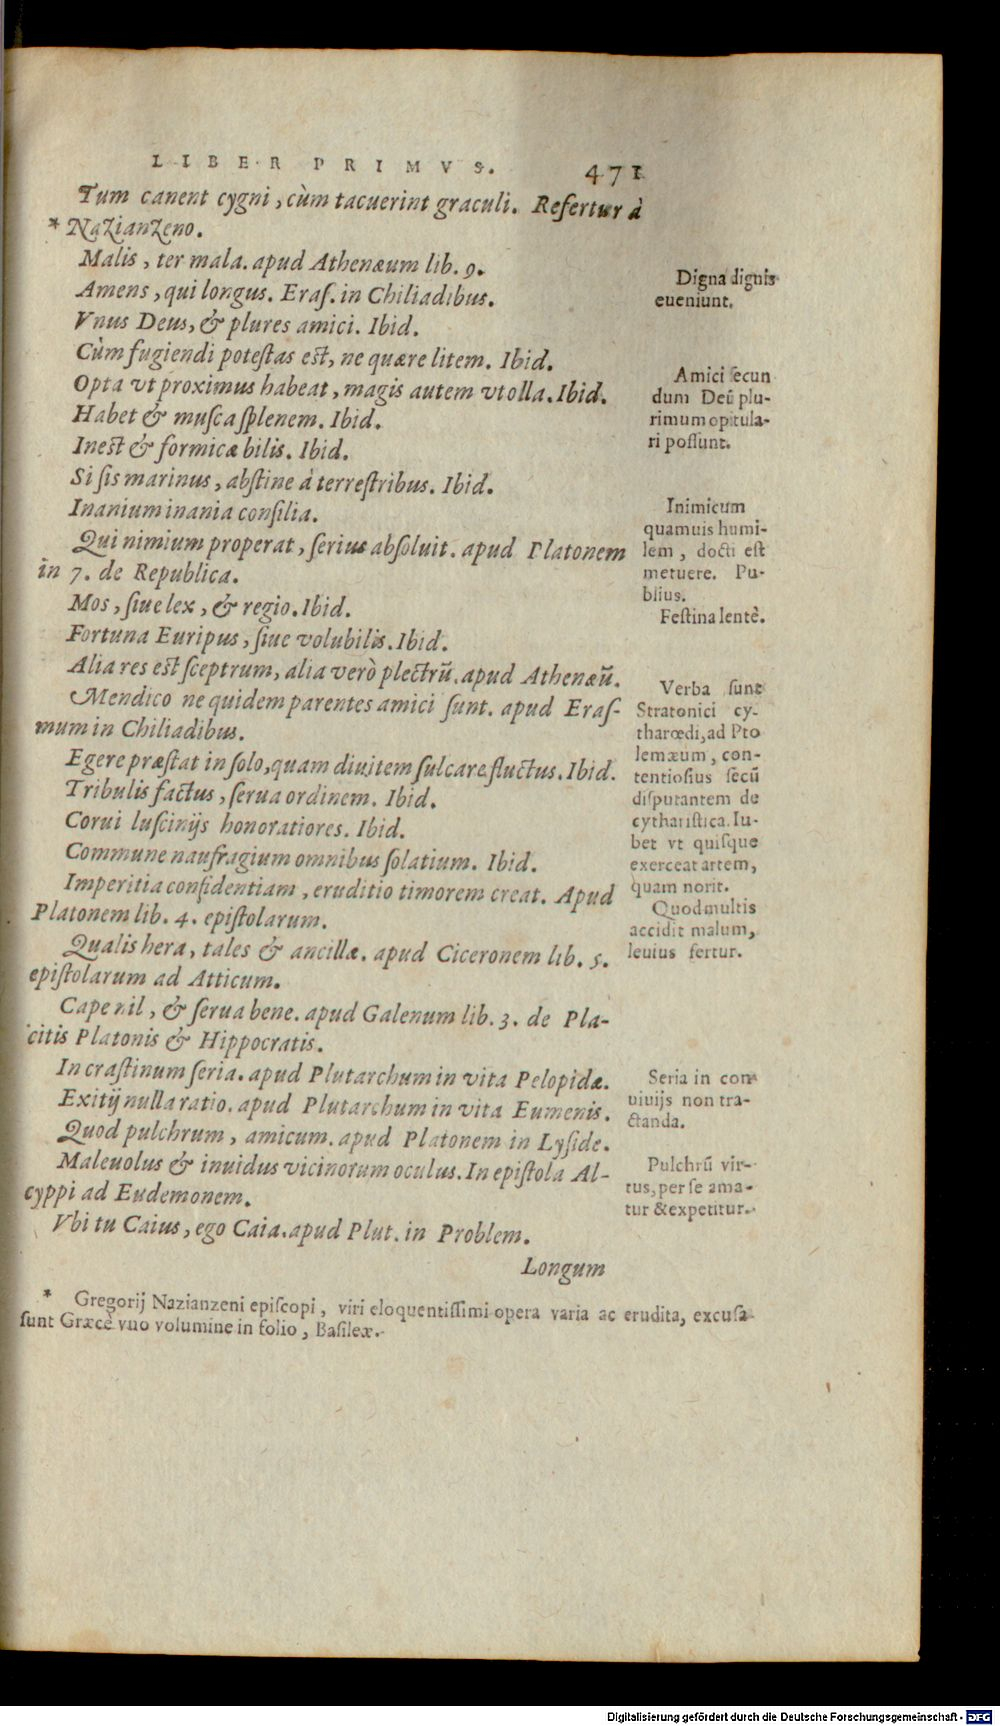 LIBER PRIMVS. 471
Tum canent cygni, cùm tacuerint graculi. Refertur à
* Nazianzeno.
Malis, ter mala. apud Athenæum lib. 9.
Amens, qui longus. Eraſ. in Chiliadibus.
Vnus Deus, & plures amici. Ibid.
Cùm fugiendi poteſtas eſt, ne quære litem. Ibid.
Opta vt proximus habeat, magis autem vt olla. Ibid.
Habet & muſca ſplenem. Ibid.
Ineſt & formicæ bilis. Ibid.
Si ſis marinus, abſtine à terreſtribus. Ibid.
Inanium inania conſilia.
Qui nimium properat, ſerius abſoluit. apud Platonem
in 7. de Republica.
Mos, ſiue lex, & regio. Ibid.
Fortuna Euripus, ſiue volubilis. Ibid.
Alia res eſt ſceptrum, alia verò plectrū. apud Athenæū.
Mendico ne quidem parentes amici ſunt. apud Eraſ-
mum in Chiliadibus.
Egere præſtat in ſolo, quam diuitem ſulcare fluctus. Ibid.
Tribulis factus, ſerua ordinem. Ibid.
Corui luſcinijs honoratiores. Ibid.
Commune naufragium omnibus ſolatium. Ibid.
Imperitia confidentiam, eruditio timorem creat. Apud
Platonem lib. 4. epiſtolarum.
Qualis hera, tales & ancillæ. apud Ciceronem lib. 5.
epiſtolarum ad Atticum.
Cape nil, & ſerua bene. apud Galenum lib. 3. de Pla-
citis Platonis & Hippocratis.
In craſtinum ſeria. apud Plutarchum in vita Pelopidæ.
Exitij nulla ratio. apud Plutarchum in vita Eumenis.
Quod pulchrum, amicum. apud Platonem in Lyſide.
Maleuolus & inuidus vicinorum oculus. In epiſtola Al-
cyppi ad Eudemonem.
Vbi tu Caius, ego Caia. apud Plut. in Problem.
Longum
Digna dignis
eueniunt.
Amici ſecun
dum Deū plu-
rimum opitula-
ri poſſunt.
Inimicum
quamuis humi-
lem, docti eſt
metuere. Pu-
blius.
Feſtina lentè.
Verba ſunt
Stratonici cy-
tharœdi, ad Pto
lemæum, con-
tentioſius ſecū
diſputantem de
cythariſtica. Iu-
bet vt quiſque
exerceat artem,
quam norit.
Quod multis
accidit malum,
leuius fertur.
Seria in con
uiuijs non tra-
ctanda.
Pulchrū vir-
tus, per ſe ama-
tur & expetitur.
* Gregorij Nazianzeni epiſcopi, viri eloquentiſſimi opera varia ac erudita, excuſa
ſunt Græcè vno volumine in folio, Baſileæ.
Digitalisierung gefördert durch die Deutsche Forschungsgemeinschaft - DFG